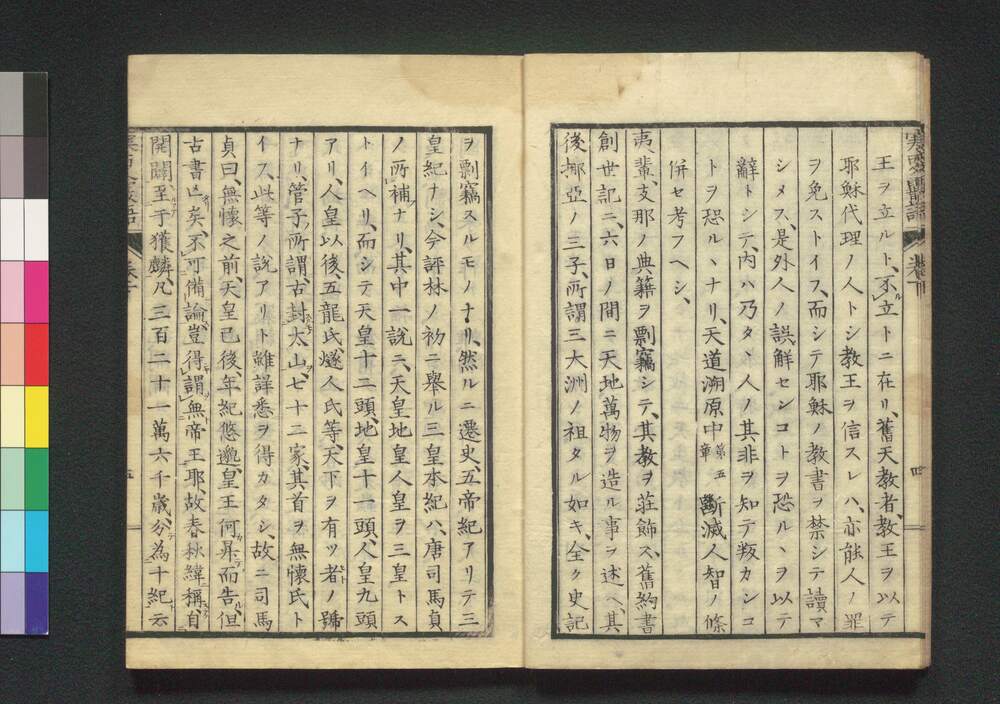 王ヲ立ルト、不ル立トニ在リ、舊天教者、教王ヲ以テ
耶穌代理ノ人トシ教王ヲ信スレハ、亦能人ノ罪
ヲ免ストイフ、而シテ耶穌ノ教書ヲ禁シテ讀マ
シメス、是外人ノ誤解センコトヲ恐ルヽヲ以テ
辭トシテ、内ハ乃タヽ人ノ其非ヲ知テ叛カンコ
トヲ恐ルヽナリ、天道溯原中第五章斷滅人智ノ條
併セ考フヘシ、
夷輩、支那ノ典籍ヲ剽竊シテ、其教ヲ莊飾ス、舊約書
創世記ニ、六日ノ間ニ天地萬物ヲ造ル事ヲ述ヘ、其
後挪亞ノ三子、所謂三大洲ノ祖タル如キ、全ク史記
四
ヲ剽竊スルモノナリ、然ルニ遷史、五帝紀アリテ三
皇紀ナシ、今評林ノ初ニ舉ル三皇本紀ハ、唐司馬貞
ノ所補ナリ、其中一說ニ、天皇地皇人皇ヲ三皇トス
トイヘリ、而シテ天皇十二頭、地皇十一頭、人皇九頭
アリ、人皇以後、五龍氏、燧人氏等、天下ヲ有ツ者ノ號
ナリ、管子所謂、古封太山、七十二家、其首ヲ無懷氏ト
イス、此等ノ說アリト雖詳悉ヲ得カタシ、故ニ司馬
貞曰、無懷之前、天皇已後、年紀悠邈、皇王何昇而告、但
古書亡矣、不可備論、豈得謂無帝王耶、故春秋緯稱、自
開闢至于獲麟、凡三百二十一萬六千歲、分為十紀云
五